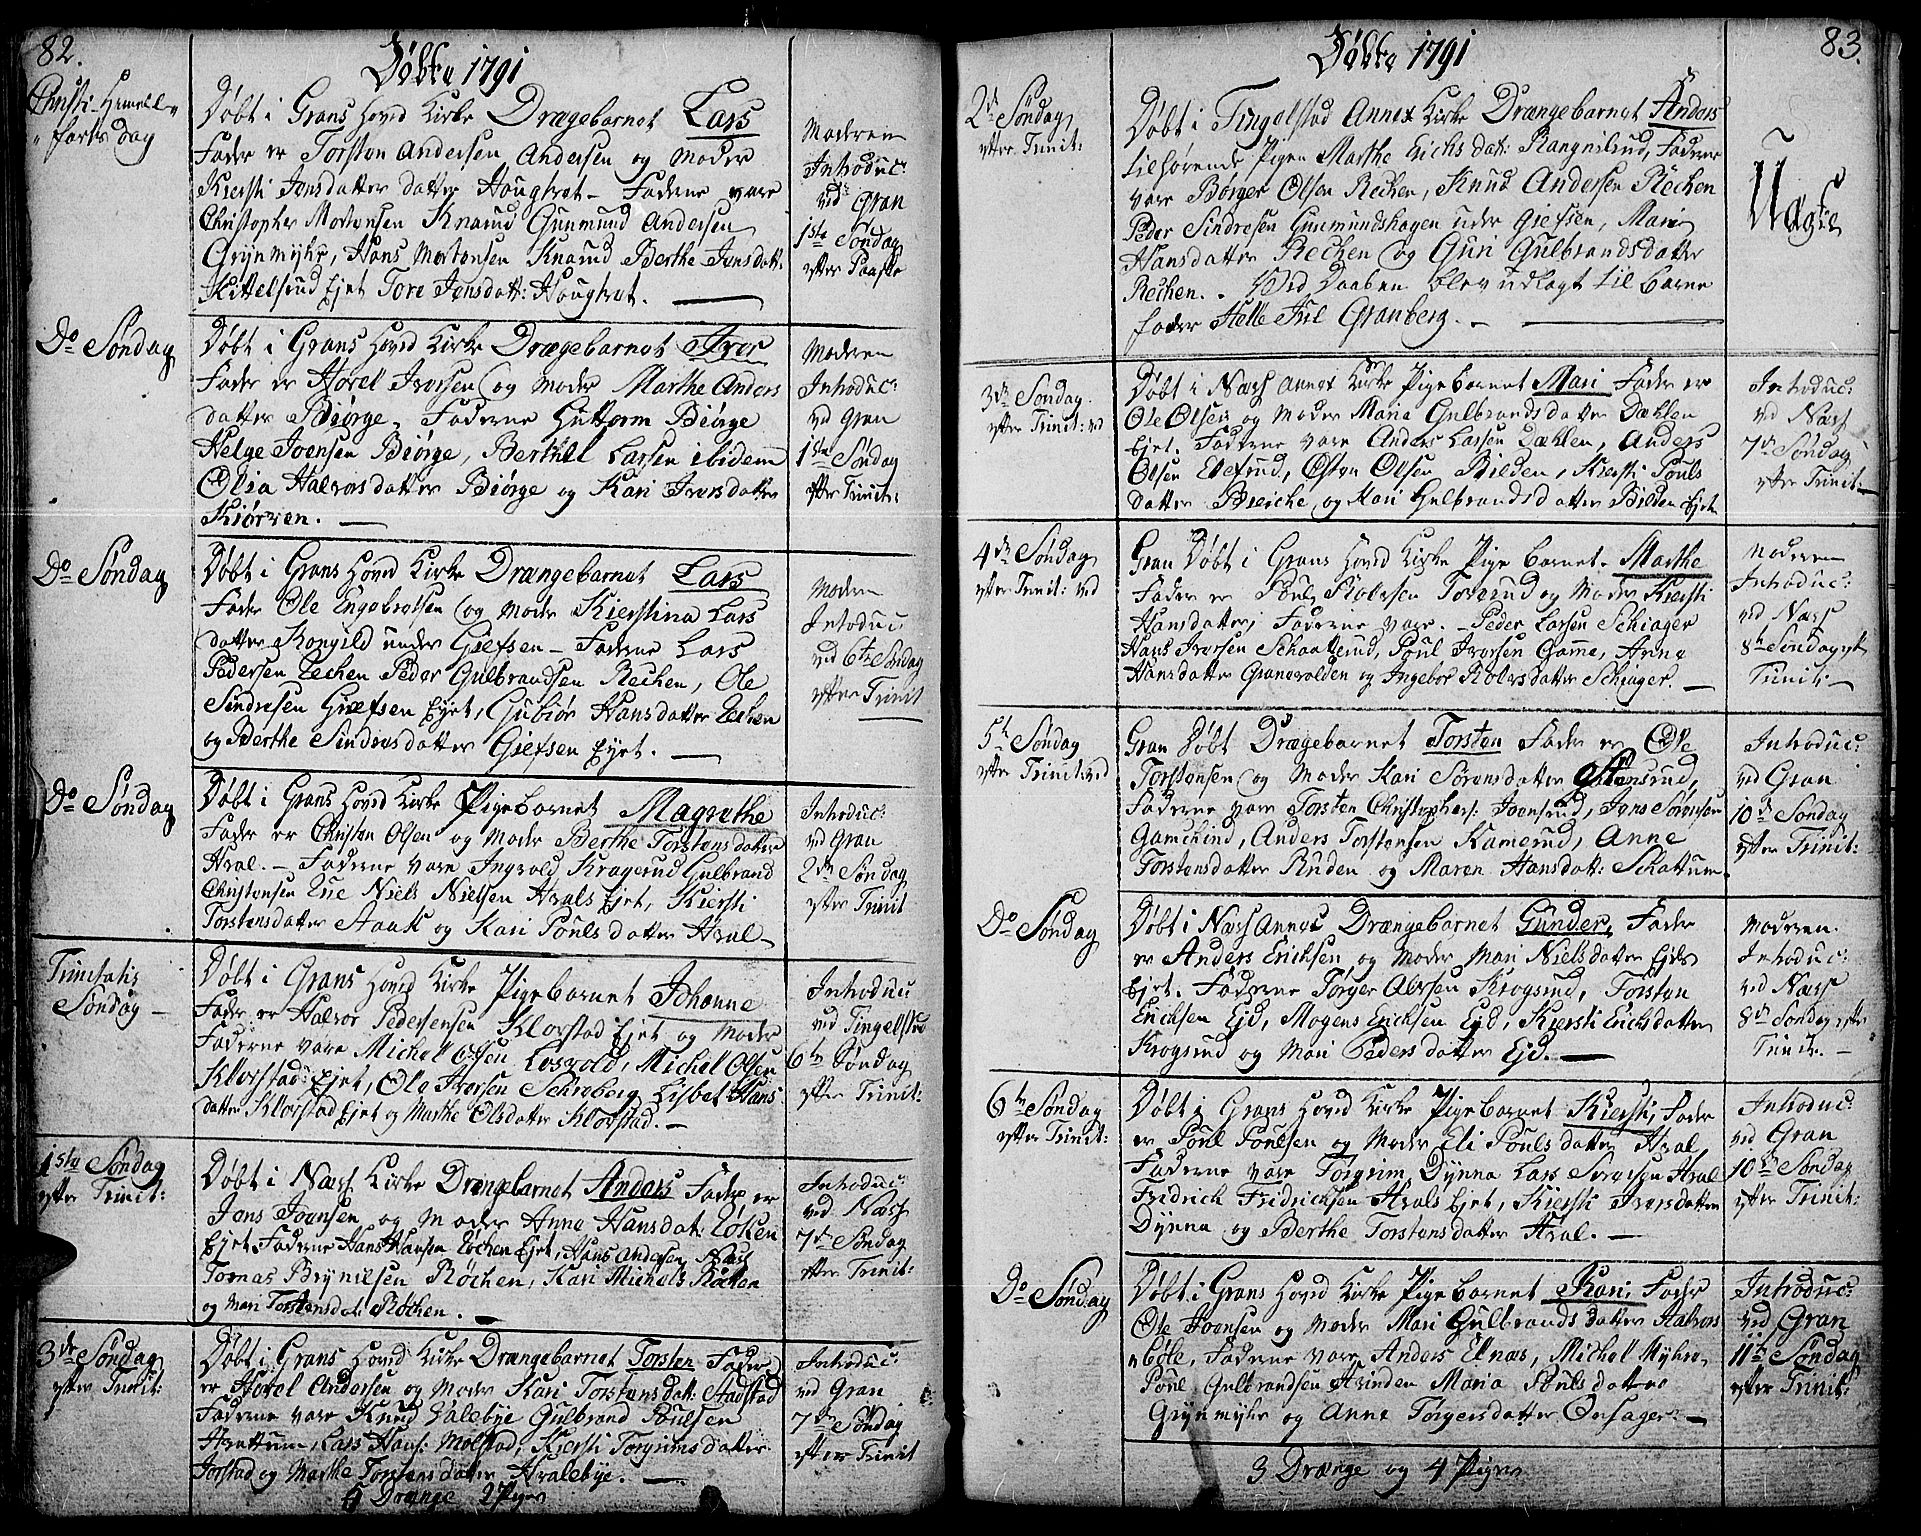 82.
Døbte 1791
Christi Himmel-
farts dag
Døbt i Grans Hoved Kirke Drængebarnet Lars
Fader er Torsten Andersen Andersen og Moder
Kiersti Jensdatter datter Hougtvet - Faderne vare
Christopher Mortensen Knarud Gunmund Andersen
Grynmyhr, Hans Mortensen Knarud Berthe Jensdatt:
Kittelsrud Ejet Tore Jensdatt: Hougtvet.
Moderen
Introduc:
ved Gran
1ste Søndag
efter Paaske
Do Søndag
Døbt i Grans Hoved Kirke Drægebarnet Iver
Fader er Hovel Iversen og Moder Marthe Anders
datter Biørge, Faderne Guttorm Biørge
Helge Joensen Biørge, Berthel Larsen ibidem
Olia Halvorsdatter Biørge og Kari Iversdatter
Kiørven.
Moderen
Introduc:
ved Gran
1ste Søndag
efter Trinit:
Do Søndag
Døbt i Grans Hoved Kirke Drængebarnet Lars
Fader Ole Engebretsen og Moder Kierstina Lars
datter Kongild under Giefsen - Faderne Lars
Pedersen Rechen Peder Gulbrandsen Rechen, Ole
Sindresen Giefsen Ejet, Gubiør Hansdatter Rechen
og Berthe Sindresdatter Giefsen Ejet.
Moderen
Introduc:
ved 6te Søndag
efter Trinit
Do Søndag
Døbt i Grans Hoved Kirke Pigebarnet Magrethe
Fader er Christen Olsen og Moder Berthe Torstensdatter
Hval. - Faderne vare Ingvold Kragerud Gulbrand
Christensen Niels Nielsen Hvals Ejet, Kiersti
Torstensdatter Haak og Kari Poulsdatter Hval
Introduc:
ved Gran
2den Søndag
efter Trinit
Trinitatis
Søndag
Døbt i Grans Hoved Kirke Pigebarnet Johanne
Fader er Halvor Pedersensen Klovstad Ejet og Moder
Faderne vare Michel Olsen Losvold, Michel Olsen
Klovstad Ejet, Ole Iversen Schreberg Lisbet Hans
datter Klovstad Ejet og Marthe Olsdatter Klovstad.
Introduc
ved Tingelstad
6te Søndag
efter Trinit:
1ste Søndag
efter Trinit:
Døbt i Næss Kirke Drængebarnet Anders Fader er
Jens Joensen og Moder Anne Hansdat:
Ejet Faderne Hans Hansen Røchen Ejet, Hans Andersen Næss
Tomas Brynilsen Røchen, Kari Michels
og Mari Torstensdat: Røchen.
Introduc:
ved Næss
7de Søndag
efter Trinit:
3de Søndag
efter Trinit:
Døbt i Grans Hoved Kirke Drængebarnet Torsten Fader
er Hovel Andersen og Moder Kari Torstensdatt: Hadstad
Faderne vare Knud Dalebye Gulbrand Poulsen
Hvattum, Lars Hans: Molstad, Kiersti Torgrimsdatter
Jorstad og Marthe Torstensdatter Hvalebye.
Introduc:
ved Gran
7de Søndag
efter Trinit
6 Drænge 2 Piger
83.
Døbte 1791
2de Søndag
efter Trinit:
Døbt i Tingelstad Annex Kirke Drængebarnet Anders
tilhørende Pigen Marthe Erichsdat: Rangnilrud, Faderne
vare Børger Olsen Rechen, Knud Andersen Rechen
Peder Sindresen Gunmundshagen under Giefsen, Mari
Hansdatter Rechen og Guri Gulbrandsdatter
Rechen. Ved Daaben blev udlagt til Barne
fader Helle Juel Granberg.
Uægte
3de Søndag
efter Trinit: ved
Døbt i Næss Annex Kirke Pigebarnet Mari Fader er
Ole Olsen og Moder Maria Gulbrandsdatter Dæhlen
Ejet. Faderne vare Anders Larsen Dæhlen, Anders
Olsen Egerud, Østen Olsen Bilden, Kiersti Pouls
datter Breiche, og Mari Gulbrandsdatter Bilden Ejet
Introduc:
ved Næss
7de Søndag
efter Trinit:
4de Søndag
efter Trinit: ved
Gran Døbt i Grans Hoved Kirke Pige Barnet Marthe
Fader er Poul Robersen Tomrud og Moder Kiersti
Hansdatter; Faderne vare. - Peder Larsen Schiager
Hans Iversen Schaatterud, Poul Iversen Gamme, Anne
Hansdatter Granevolden og Ingebor Robersdatter Schiager.
Moderen
Introduc:
ved Næss
8de Søndag eft
Trinit:
5te Søndag
efter Trinit: ved
Gran Døbt Drægebarnet Torsten Fader er Ole
Torstensen og Moder Kari Sørensdatter Stensrud,
Faderne vare Torsten Christophers: Joensrud, Jens Sørensen
Gamchind, Anders Torstensen Kamerud, Anne
Torstensdatter Rinden og Maren Hansdatt: Schattum
Introduc:
ved Gran
10de Søndag
efter Trinit:
Do Søndag
Døbt i Næss Annex Drængebarnet Gunder, Fader
er Anders Ericksen og Moder Mari Nielsdatter Ejds
Ejet. Faderne Torger Alersen Krogsrud, Torsten
Ericksen Ejd, Mogens Ericksen Ejd, Kiersti Ericksdatter
Krogsrud og Mari Pedersdatter Ejd.
Moderen.
Introduc:
ved Næss
8de Søndag efter
Trinit.
6te Søndag
efter Trinit:
Døbt i Grans Hoved Kirke Pigebarnet Kiersti, Fader
er Poul Poulsen og Moder Eli Poulsdatter Hval
Faderne vare Torgrim Dynna Lars Iversen Hval
Fridrick Fridricksen Hvals Ejet, Kiersti Iversdatter
Dynna og Berthe Torstensdatter Hval.
Introduc:
ved Gran
10de Søndag
efter Trinit:
Do Søndag
Døbt i Grans Hoved Kirke Pige Barnet Kari, Fader
Ole Joensen og Moder Mari Gulbrandsdatter Halvors
bøle, Faderne vare Anders Elnæs, Michel Myhre
Poul Gulbrandsen Hvinden Maria Poulsdatter
Grynmyhr og Anne Torgersdatter Onsager.
Introduc:
ved Gran
11te Søndag
efter Trinit:
3 Drænge og 4 Piger